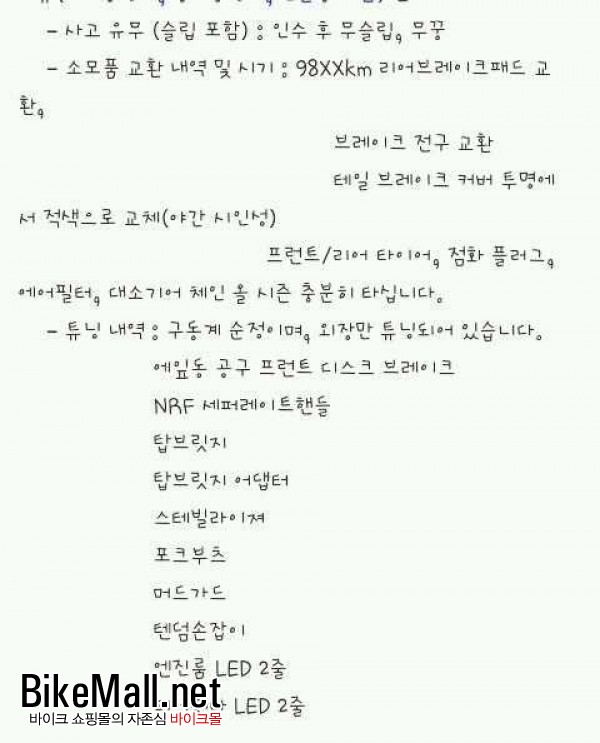 - 사고 유무 (슬립 포함) : 인수 후 무슬립, 무꿍
- 소모품 교환 내역 및 시기 : 98XXkm 리어브레이크패드 교
환,
브레이크 전구 교환
테일 브레이크 커버 투명에
서 적색으로 교체(야간 시인성)
프런트/리어 타이어, 점화 플러그,
에어필터, 대소기어 체인 올 시즌 충분히 타십니다.
- 튜닝 내역 : 구동계 순정이며, 외장만 튜닝되어 있습니다.
에잎동 공구 프런트 디스크 브레이크
NRF 세퍼레이트핸들
탑브릿지
탑브릿지 어댑터
스테빌라이져
포크부츠
머드가드
텐덤손잡이
엔진룸 LED 2줄
LED 2줄
BikeMall.net
바이크 쇼핑몰의 자존심 바이크몰